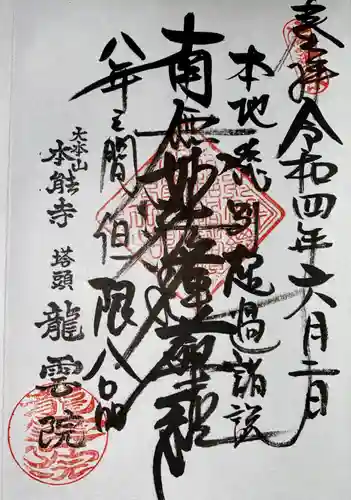 奉拝 令和四年六月二日
本地究別起過諸説
南無妙法蓮華経
八年之間但限八品
大本山
本能寺
塔頭 龍雲院